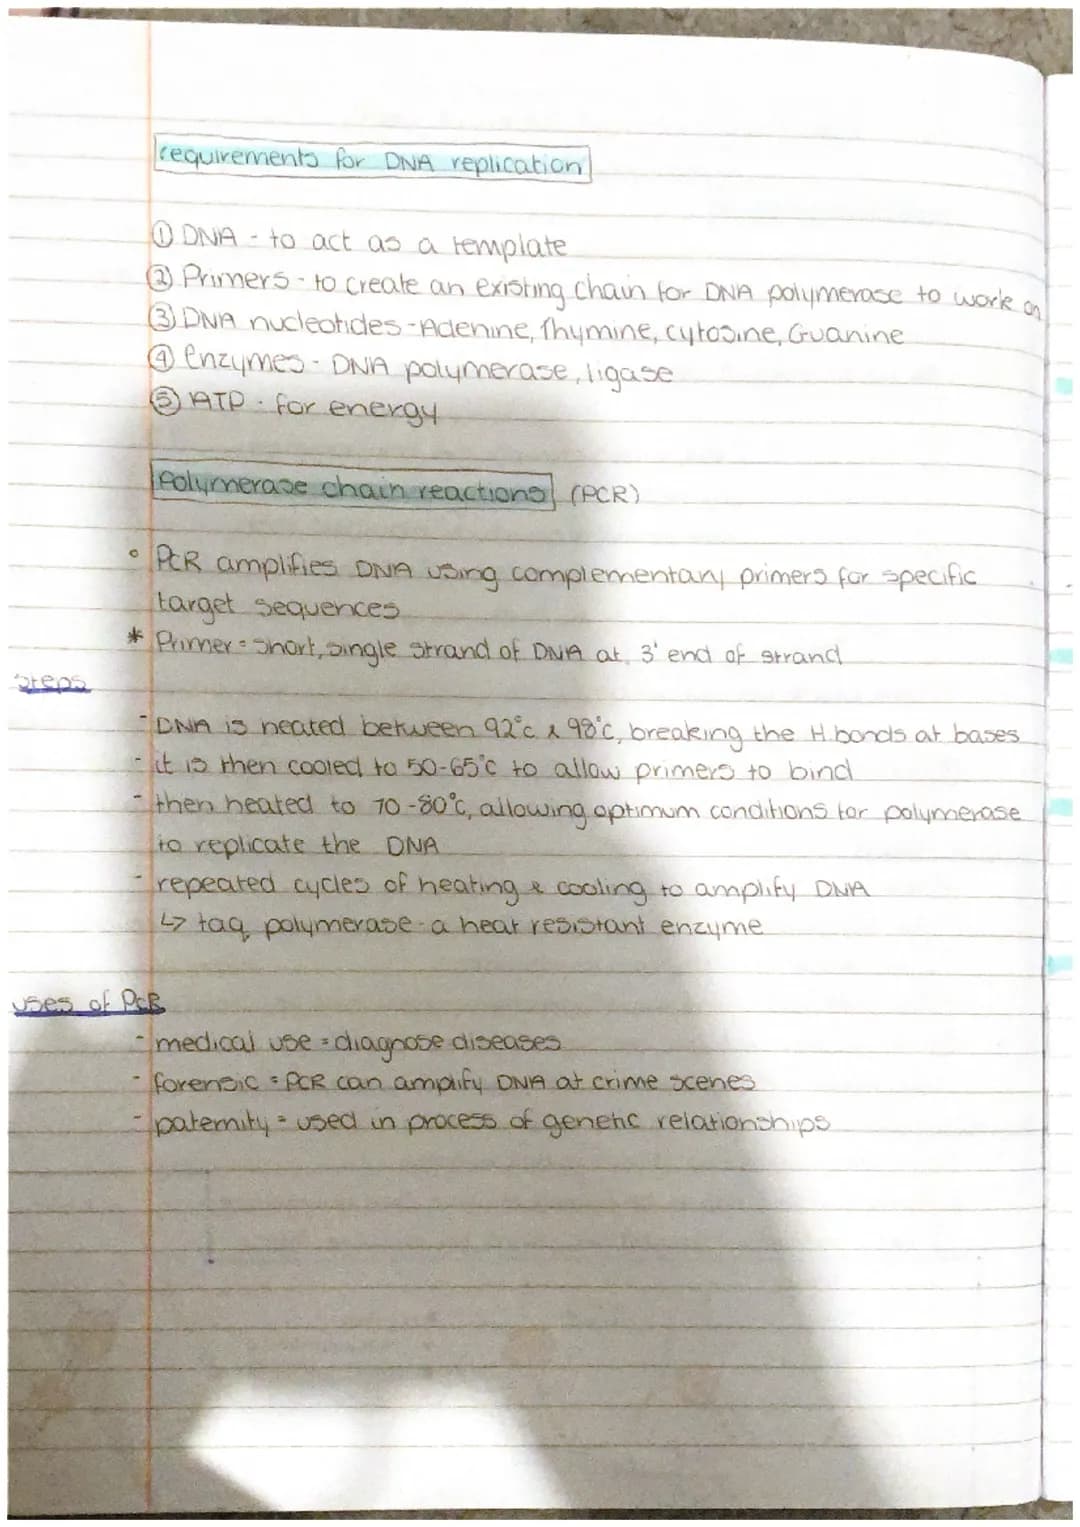 requirements for DNA replication
① DNA - to act as a template
② Primers - to create an existing chain for DNA polymerase to work on
③ DNA nucleotides - Adenine, Thymine, cytosine, Guanine
④ enzymes - DNA polymerase, ligase
⑤ ATP - for energy
Polymerase chain reactions (PCR)
° PCR amplifies DNA using complementary primers for specific
target sequences
* Primer = short, single strand of DNA at 3' end of strand
Steps
- DNA is heated between 92°c & 98°c, breaking the H bonds at bases
- it is then cooled to 50-65°c to allow primers to bind
- then heated to 70-80°c, allowing optimum conditions for polymerase
to replicate the DNA
- repeated cycles of heating & cooling to amplify DNA
↳ taq polymerase - a heat resistant enzyme
uses of PCR
- medical use = diagnose diseases
- forensic = PCR can amplify DNA at crime scenes
- paternity = used in process of genetic relationships